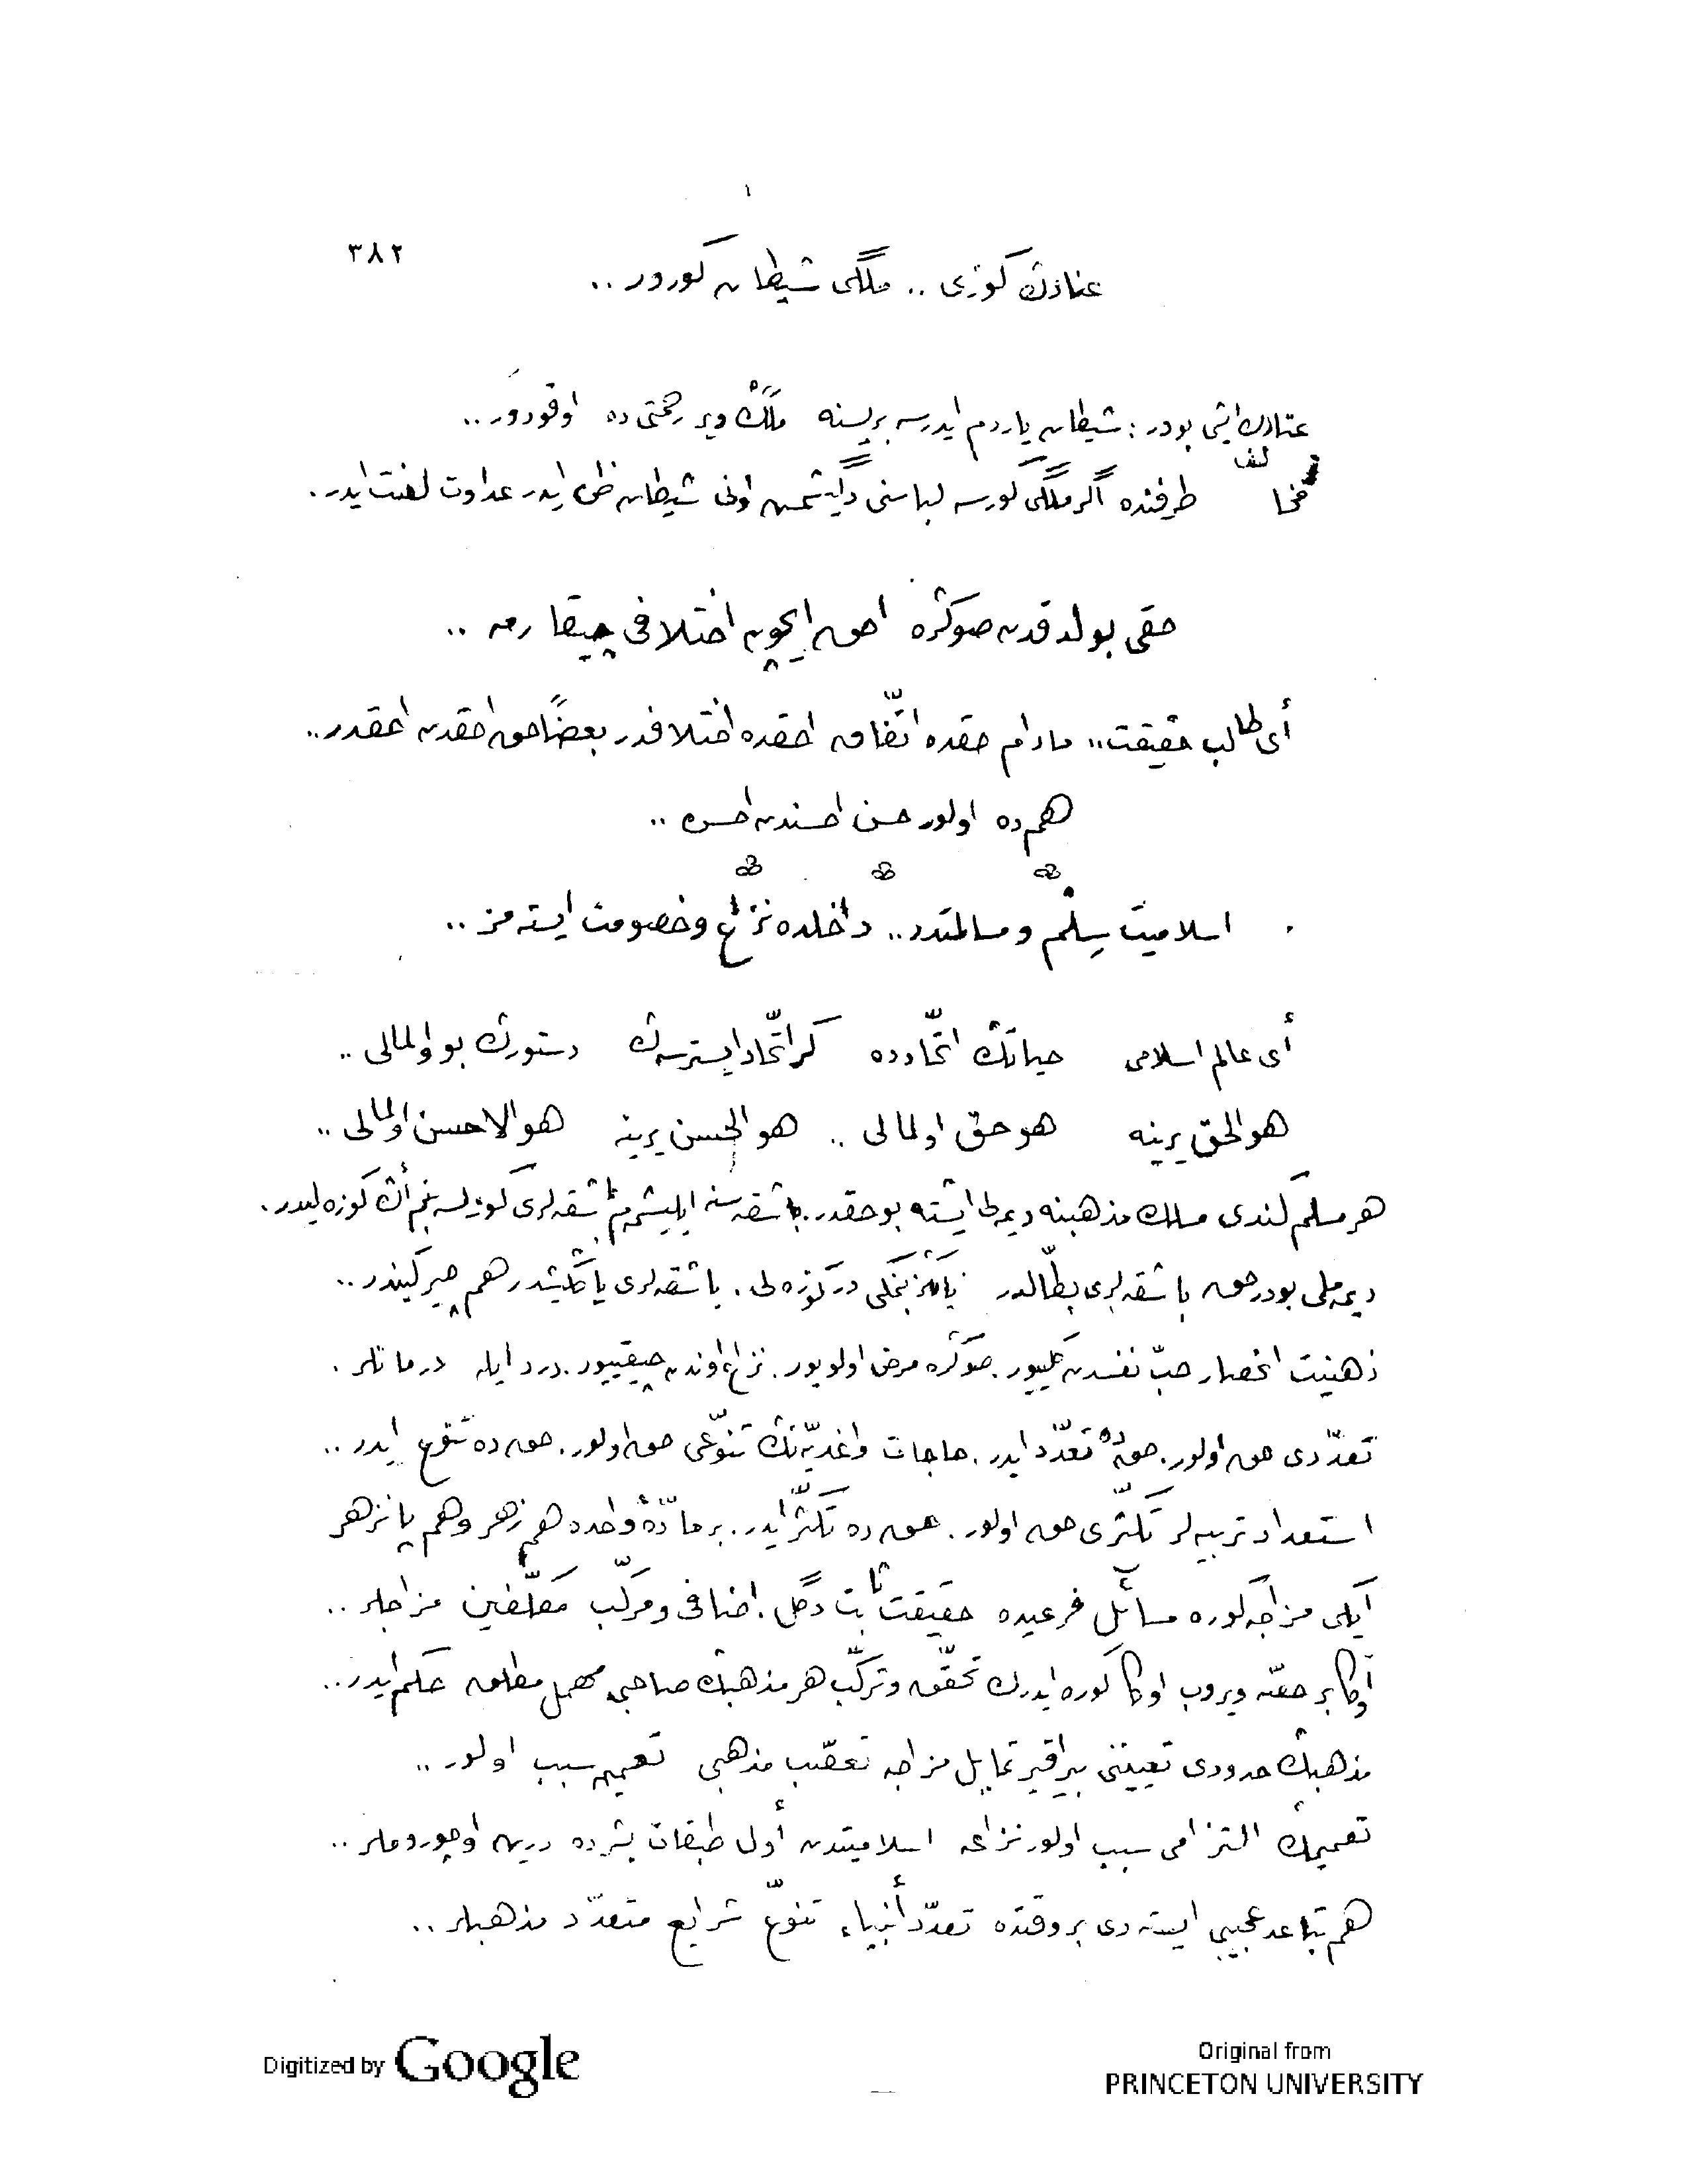 ٣٨٢
عنادڭ كوزی .. ملگی شیطان كورور ..
عنادڭ ایشی بودر : شیطان یاردم ایدرسه بریسنه ملكڭ دیر رحمتی ده اوقودور ..
مخالف طرفنده اگر ملگی كورسه لباسنی دگیشمش اونی شیطان ظن ایدر عداوت لعنت ایدر .
حقی بولدقدن صوڭره احق ایچون اختلافی چیقارمه ..
أی طالب حقیقت .. مادام حقده اتّفاق احقده اختلافدر بعضًا حق احقدن احقدر ..
هم ده اولور حسن احسندن احسن ..
اسلامیت سِلْم و مسالمتدر .. داخلده نزاع و خصومت ایسته مز ..
أی عالم اسلامی حیاتڭ اتّحادده گر اتّحاد ایسترسه ڭ دستورڭ بو اولمالی ..
هوالحق یرینه هو حق اولمالی .. هوالحسن یرینه هوالاحسن اولمالی ..
هر مسلم كندی مسلك مذهبنه دیملی ایشته بو حقدر . باشقه سنه ایلیشمم باشقه لری گوزلسه بنم أڭ گوزه لیدر .
دیمه ملی بودر حق باشقه لری بطّالدر یاڭز بنمكی در گوزه لی . باشقه لری یاڭلیشدر هم چیركیندر ..
ذهنیت انحصار حبّ نفسدن گلییور . صوڭره مرض اولویور . نزاع اوندن چیقییور . درد ایله درمانلر .
تعدّدی حق اولور . حق ده تعدّد ایدر . حاجات و اغدیّه نڭ تنوّعی حق اولور . حق ده تنوّع ایدر ..
استعداد تربیه لر تكثّری حق اولور . حق ده تكثّر ایدر . بر مادّهٔ واحده هم زهر و هم پانزهر
ایكی مزاجه گوره مسائل فرعیده حقیقت ثابت دگل . اضافی و مركّب مكلّفین مزاجلر ..
اوڭا بر حصّه ویروب اوڭا گوره ایدرك تحقّق و تركّب هر مذهبڭ صاحبی مهمل مطلق حكم ایدر ..
مذهبڭ حدودی تعییننی بیراقیر تمایل مزاجه تعصّب مذهبی تعمیمه سبب اولور ..
تعمیمڭ التزامی سبب اولور نزاعه اسلامیتدن أول طبقات بشرده درین اوچورو ملر ..
هم تباعد عجیبی ایسته دی بر وقتده تعدّد أنبیاء تنوّع شرایع متعدّد مذهبلر ..
Digitized by Google
Original from
PRINCETON UNIVERSITY